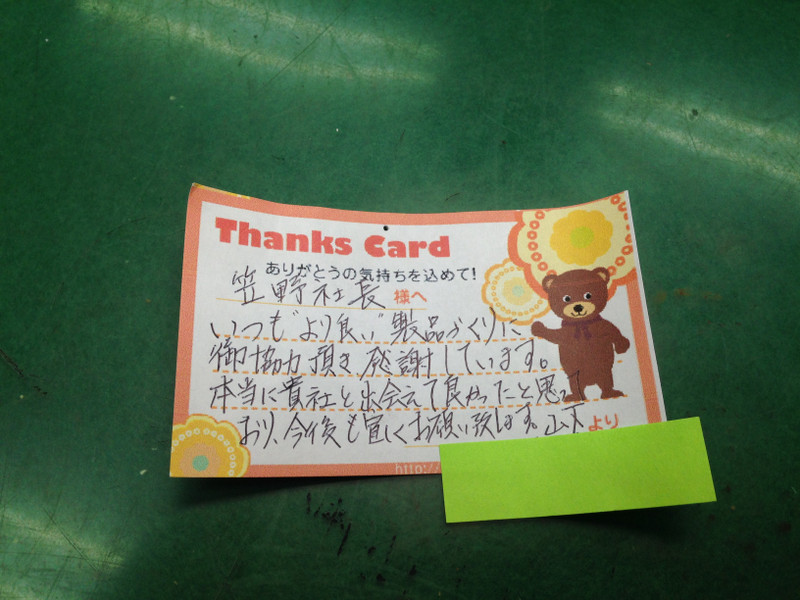 Thanks Card
ありがとうの気持ちを込めて!
笠野社長 様へ
いつも"より良い"製品づくりに
御協力頂き、感謝しています。
本当に貴社と出会えて良かったと思って
おり、今後も宜しくお願い致します。山下より
http://